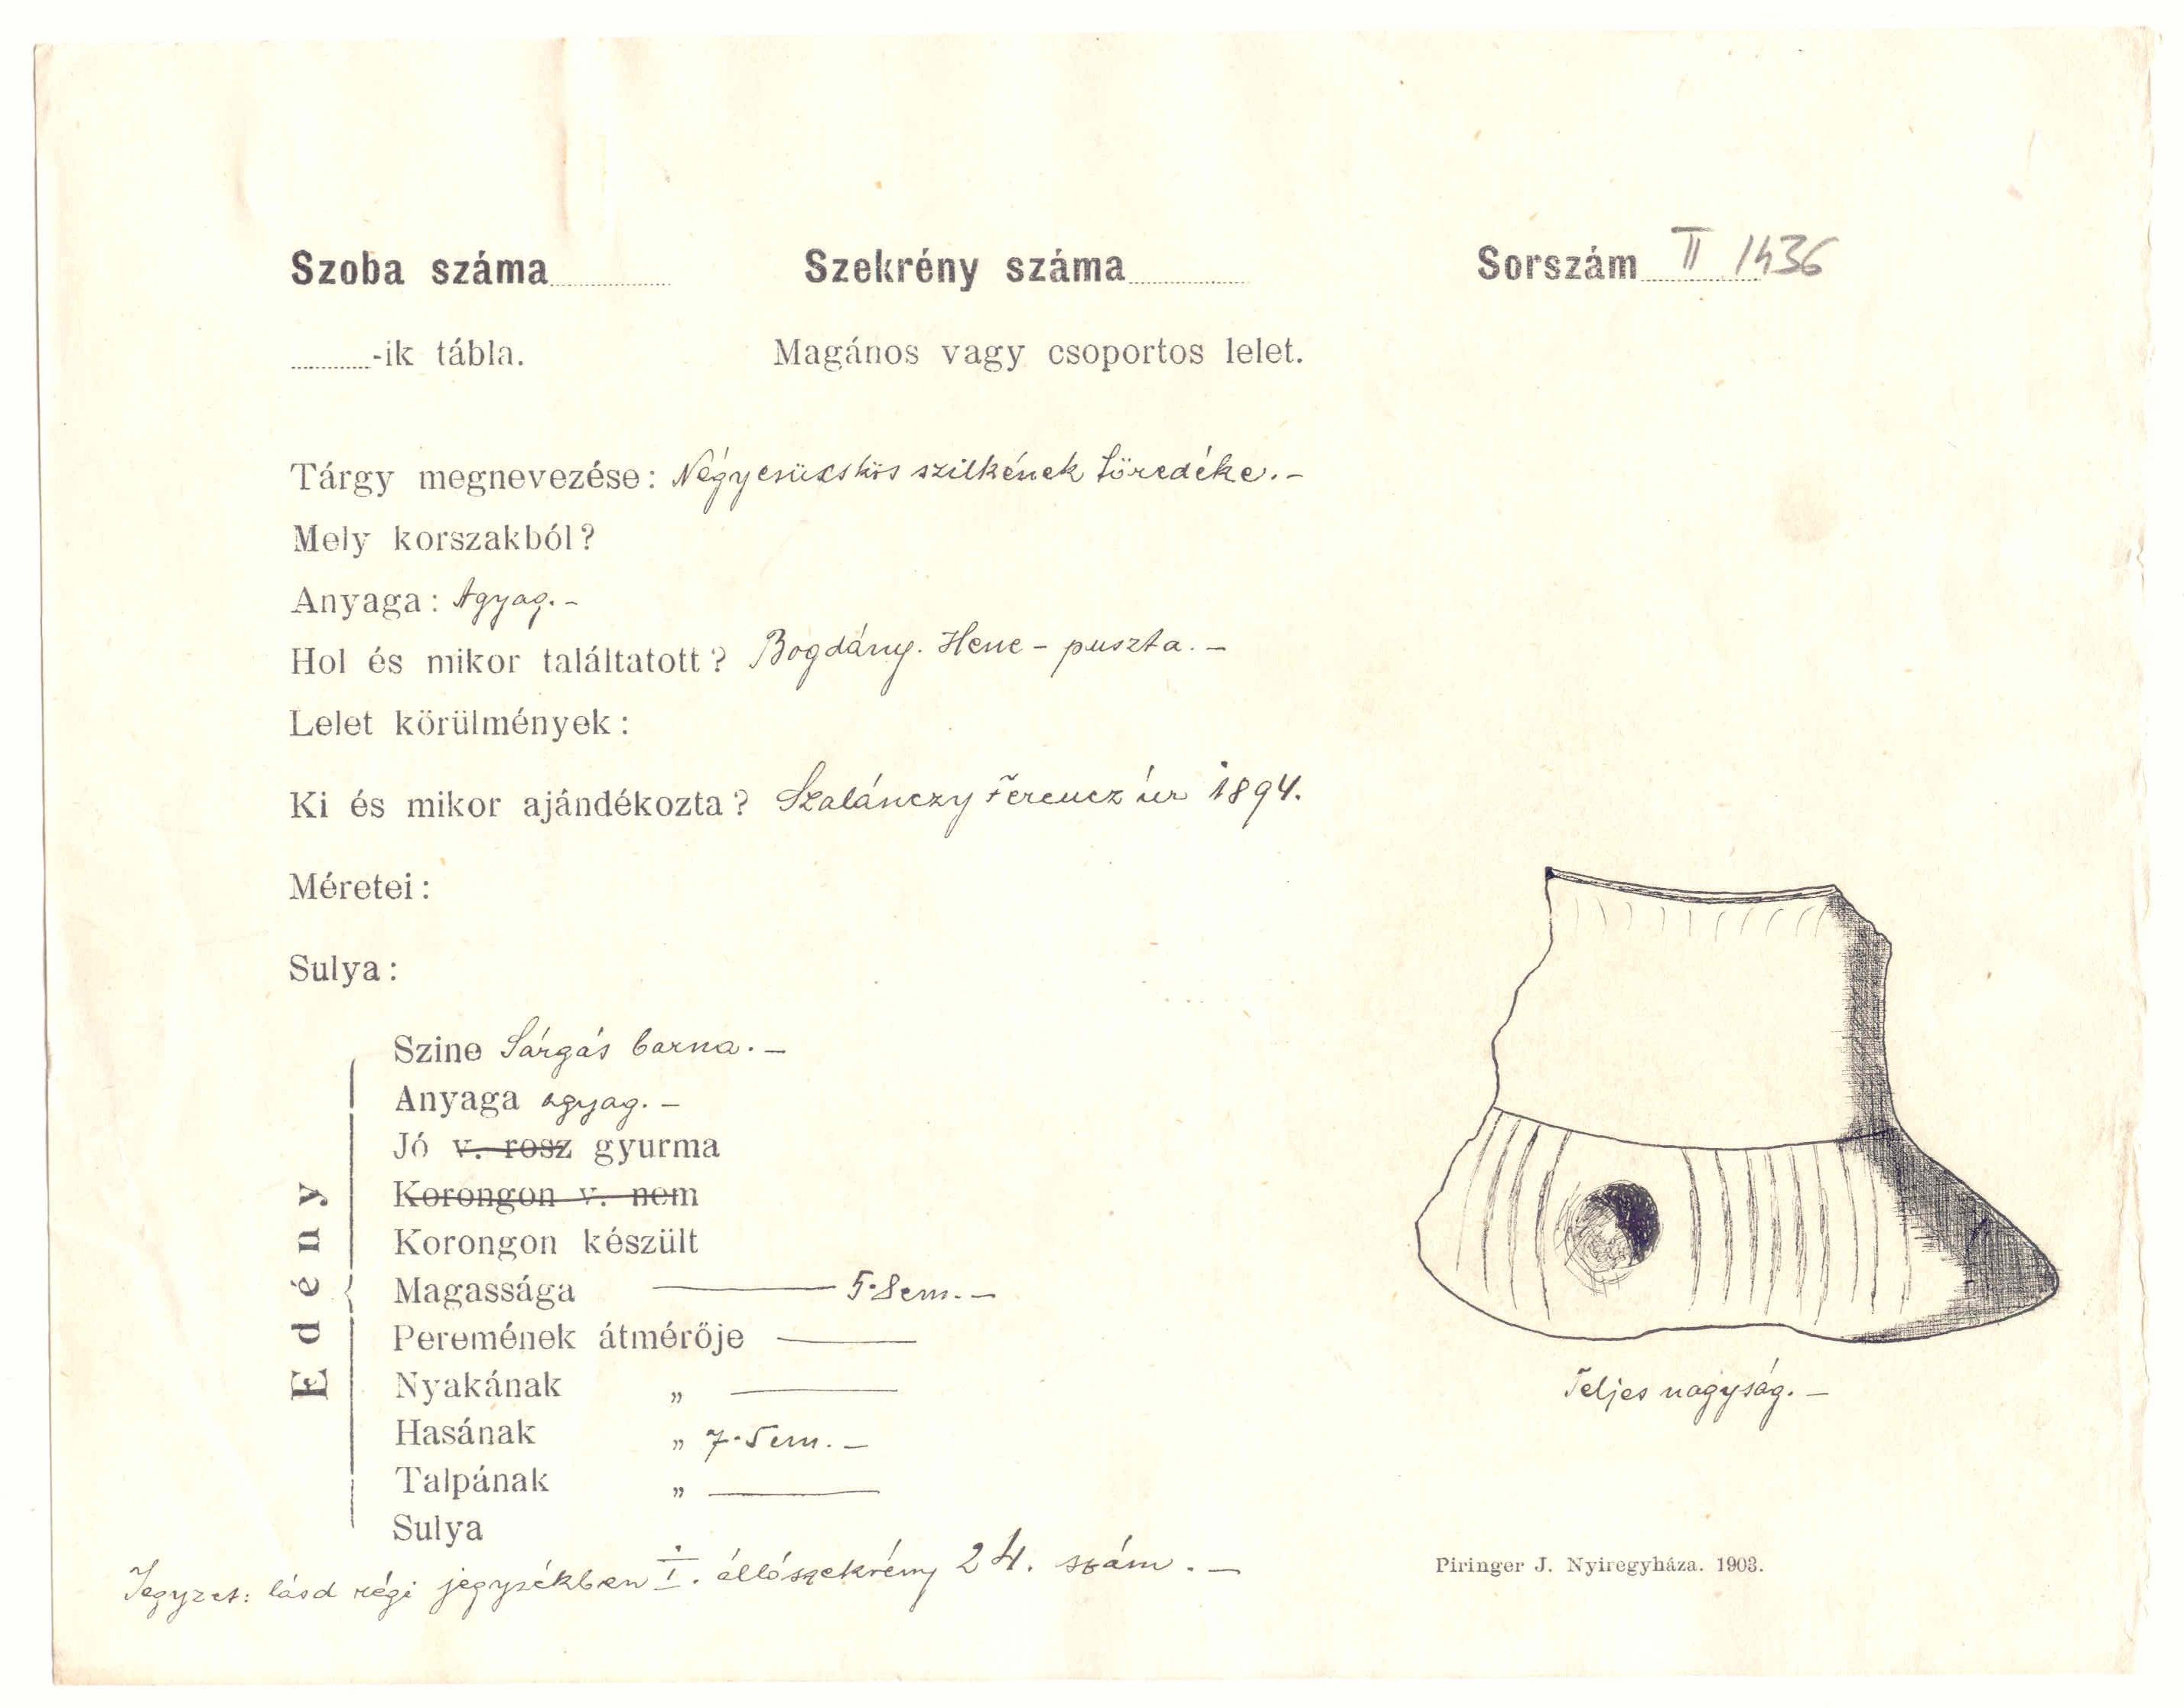 Szoba száma Szekrény száma Sorszám II 1436
-ik tábla. Magános vagy csoportos lelet.
Tárgy megnevezése: Négycsücskös szilkének töredéke. –
Mely korszakból?
Anyaga: Agyag. –
Hol és mikor találtatott? Bogdány. Hene – puszta. –
Lelet körülmények:
Ki és mikor ajándékozta? Szalánczy Ferencz úr 1894.
Méretei:
Sulya:
Edény
Szine Sárgás barna. –
Anyaga agyag. –
Jó v. rosz gyurma
Korongon v. nem
Korongon készült
Magassága 5·8 cm. –
Peremének átmérője
Nyakának „
Hasának „ 7·5 cm. –
Talpának „
Sulya
Jegyzet: lásd régi jegyzékben I. állószekrény 24. szám. –
Teljes nagyság. –
Piringer J. Nyiregyháza. 1903.